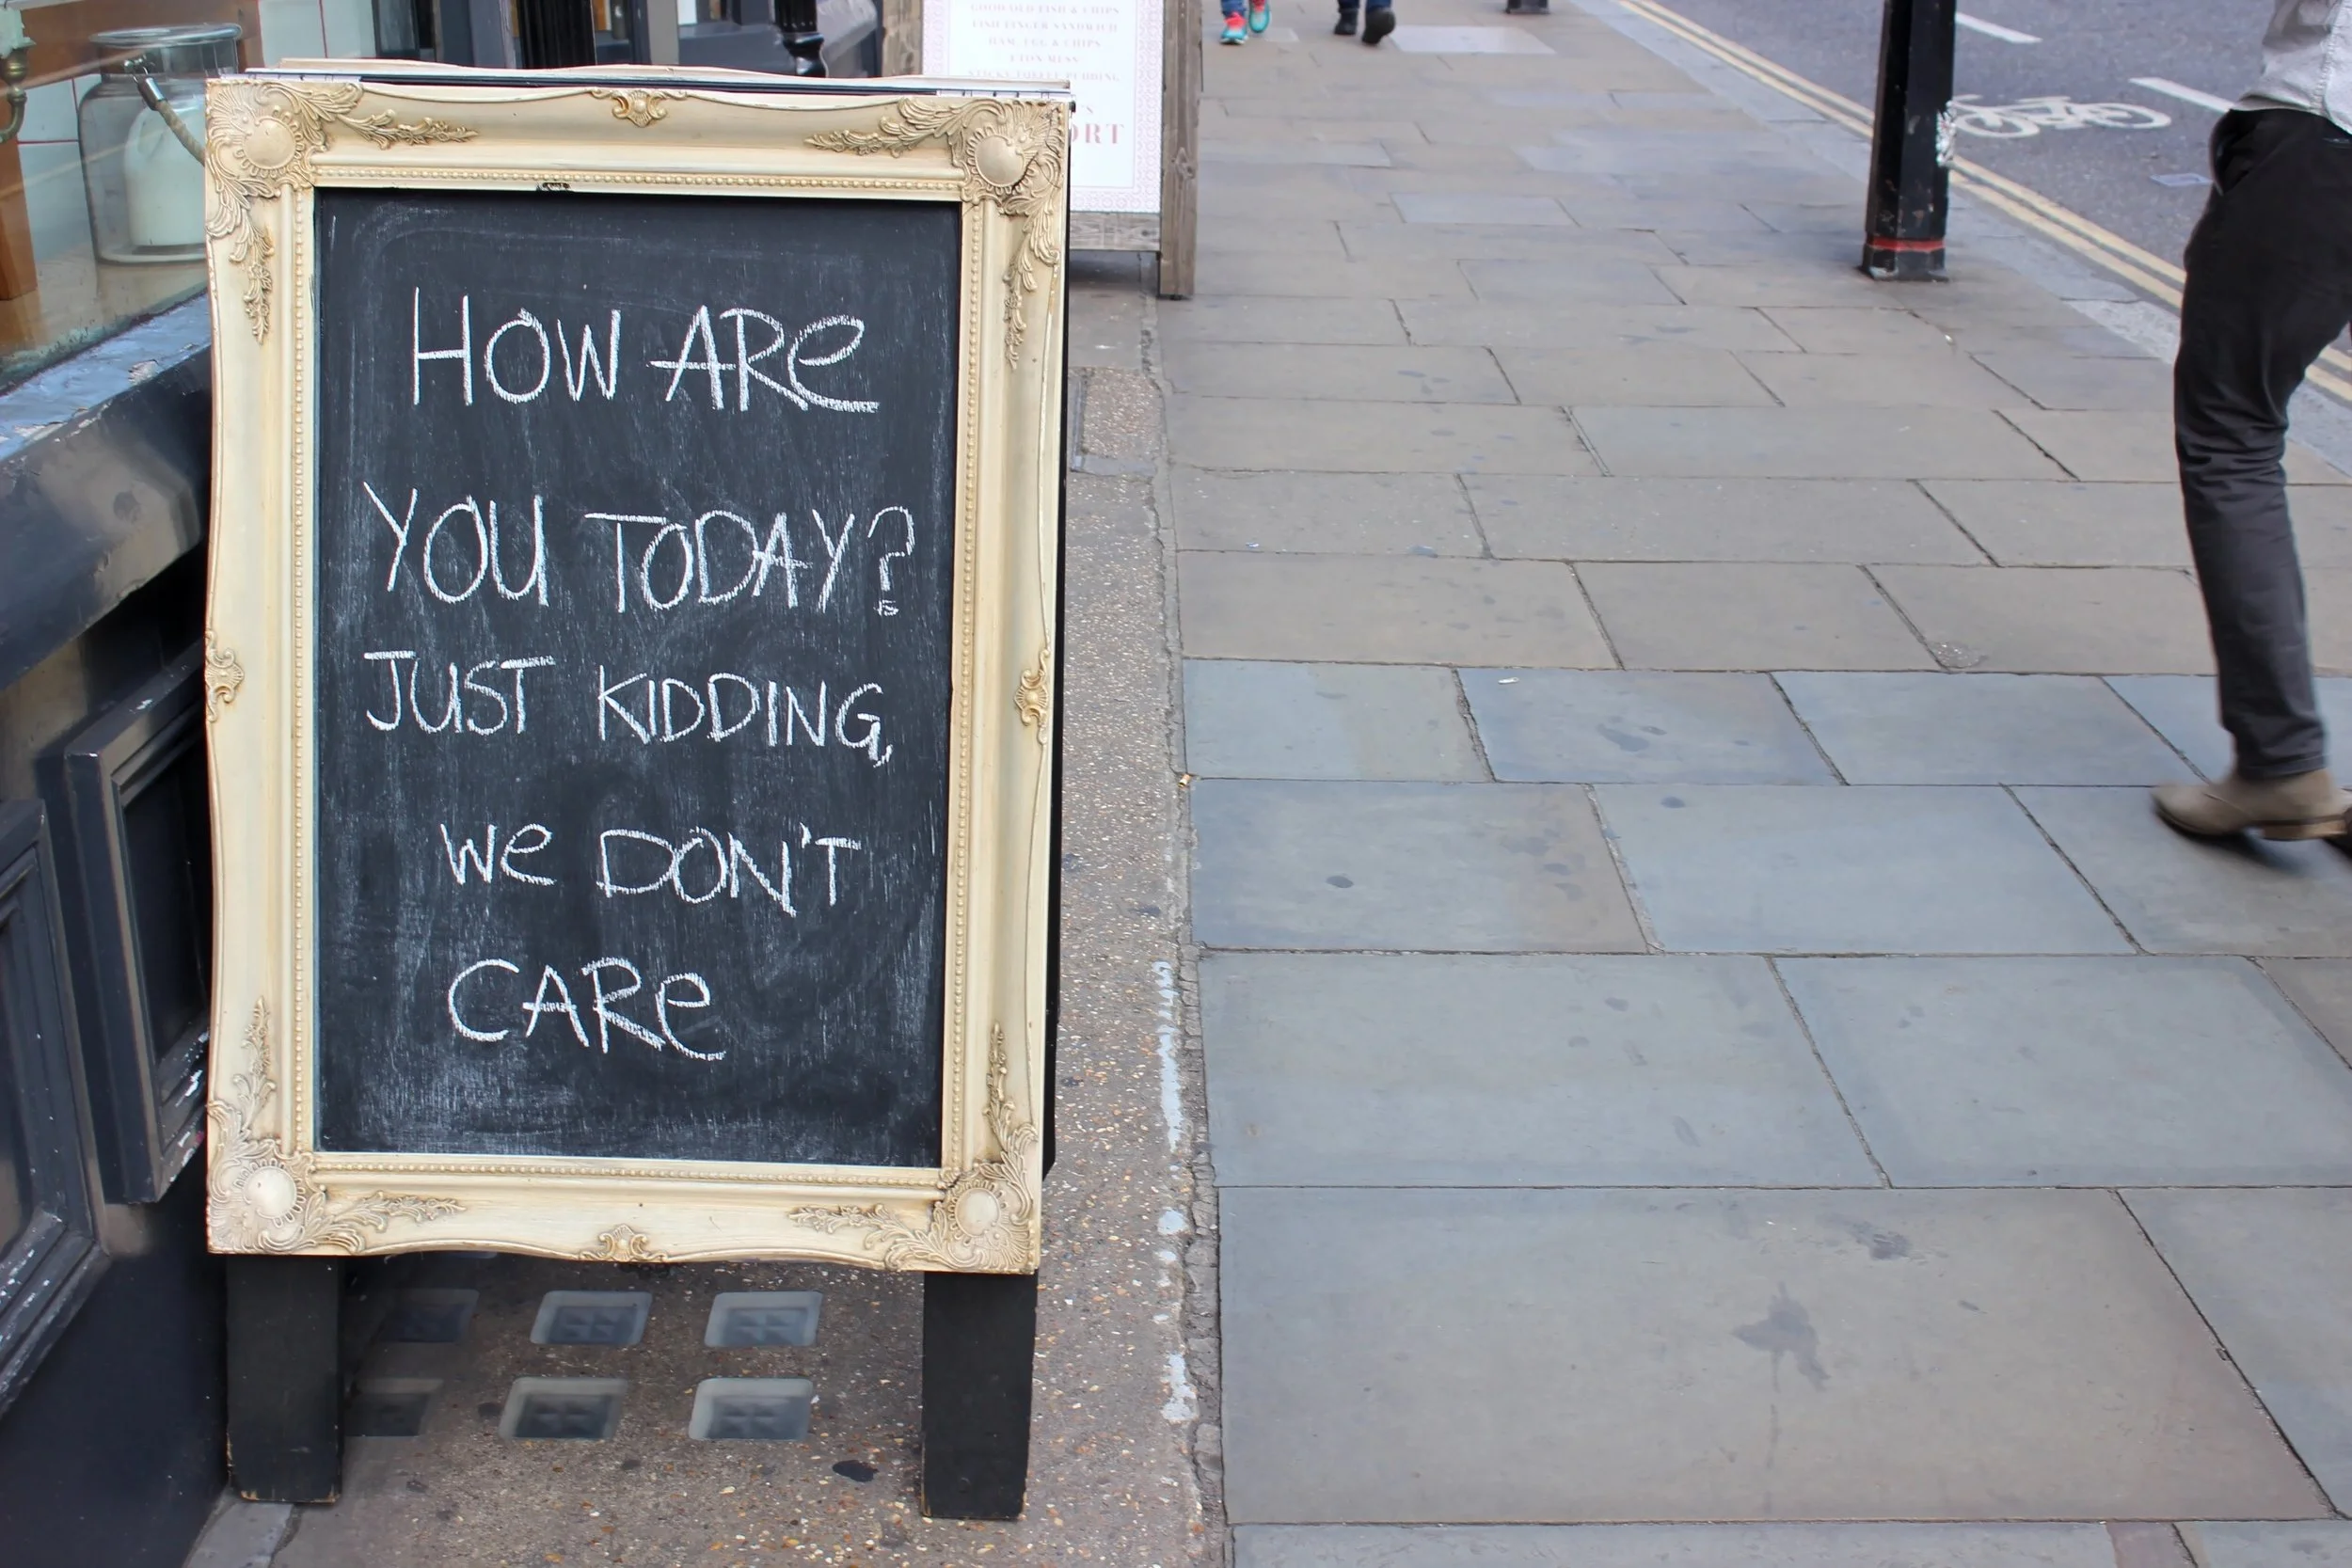 HOW ARe
YOU TODAY?
JUST KIDDING,
We DON'T
CARe
FISH FINGER SANDWICH
HAM, EGG & CHIPS
ETON MESS
STICKY TOFFEE PUDDING